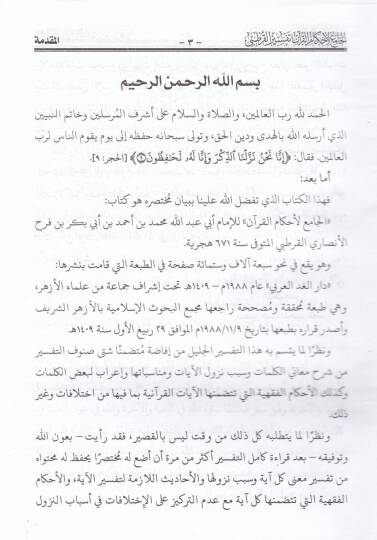 الجامع لأحكام القرآن تفسير القرطبي
- ٣ -
المقدمة
بسم الله الرحمن الرحيم
الحمد لله رب العالمين، والصلاة والسلام على أشرف المُرسلين وخاتم النبيين
الذي أرسله الله بالهدى ودين الحق، وتولى سبحانه حفظه إلى يوم يقوم الناس لرب
العالمين. فقال: ﴿إِنَّا نَحْنُ نَزَّلْنَا الذِّكْرَ وَإِنَّا لَهُ لَحَافِظُونَ ۝٩﴾ [الحجر: ٩].
أما بعد:
فهذا الكتاب الذي تفضل الله علينا ببيان مُختصره هو كتاب:
«الجامع لأحكام القرآن» للإمام أبي عبد الله محمد بن أحمد بن أبي بكر بن فرح
الأنصاري القرطبي المتوفى سنة ٦٧١ هجرية.
وهو يقع في نحو سبعة آلاف وستمائة صفحة في الطبعة التي قامت بنشرها:
«دار الغد العربي» عام ١٩٨٨ - ١٤٠٩هـ تحت إشراف جماعة من علماء الأزهر،
وهي طبعة مُحققة ومُصححة راجعها مجمع البحوث الإسلامية بالأزهر الشريف
وأصدر قراره بطبعها بتاريخ ١٩٨٨/١١/٩م الموافق ٢٩ ربيع الأول سنة ١٤٠٩هـ.
ونظرًا لما يتسم به هذا التفسير الجليل من إفاضة مُتضمنًا شتى صنوف التفسير
من شرح معاني الكلمات وسبب نزول الآيات ومناسباتها وإعراب لبعض الكلمات
وكذلك الأحكام الفقهية التي تتضمنها الآيات القرآنية بما فيها من اختلافات وغير
ذلك.
ونظرًا لما يتطلبه كل ذلك من وقت ليس بالقصير، فقد رأيت - بعون الله
وتوفيقه - بعد قراءة كامل التفسير أكثر من مرة أن أضع له مُختصرًا يحفظ له محتواه
من تفسير معنى كل آية وسبب نزولها والأحاديث اللازمة لتفسير الآية، والأحكام
الفقهية التي تتضمنها كل آية مع عدم التركيز على الإختلافات في أسباب النزول